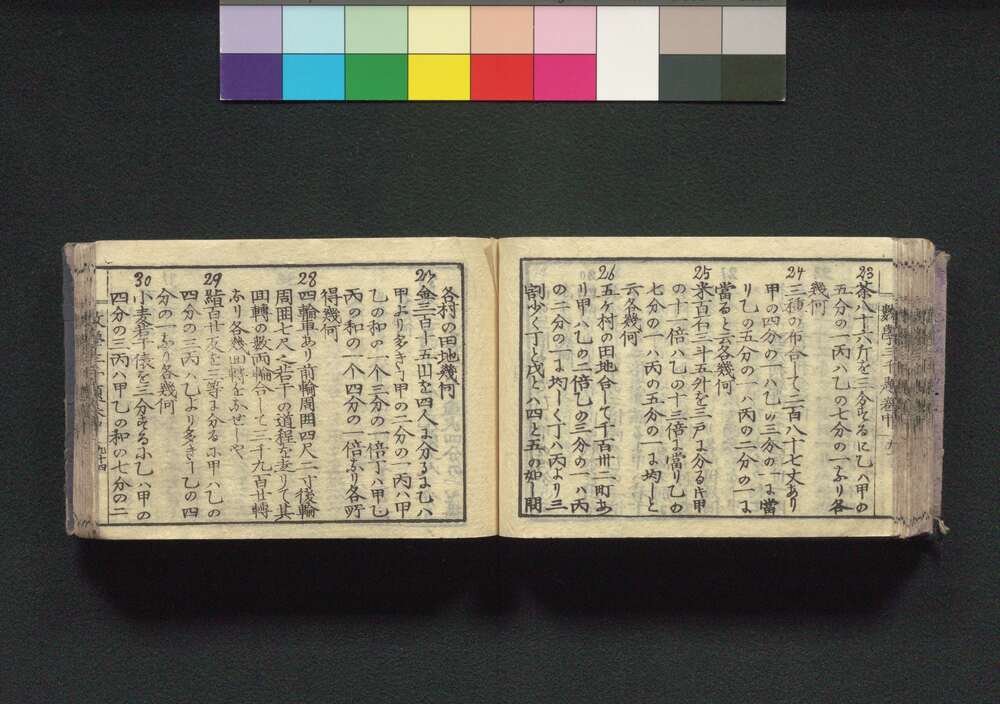 23
茶八十六斤を三分するに乙ハ甲の
五分の一丙ハ乙の七分の一なり各
幾何
24
三種の布合して二百八十七丈あり
甲の四分の一ハ乙の三分の一に當
り乙の五分の一ハ丙の二分の一に
當ると云各幾何
25
米百石三斗五升を三戸に分る氏甲
の十一倍ハ乙の十三倍に當り乙の
七分の一ハ丙の五分の一に均しと
云各幾何
26
五ヶ村の田地合して千百卅二町あ
り甲ハ乙の二倍乙の三分の一ハ丙
の二分の一に均しく丁ハ丙より三
割少く丁と戊とハ四と五の如し問
各村の田地幾何
27
金三百十五円を四人に分るに乙ハ
甲より多き丁甲の二分の一丙ハ甲
乙の和の一个三分の一倍丁ハ甲乙
丙の和の一个四分の一倍なり各所
得幾何
28
四輪車あり前輪周囲四尺二寸後輪
周囲七尺之若干の道程を走りて其
回轉の数両輪合して三千九百廿轉
なり各幾回轉をなせしや
29
四分の三丙ハ乙より多き丁乙の四
分の一なり各幾何
30
小麦
四分の三丙ハ甲乙の和の七分の二